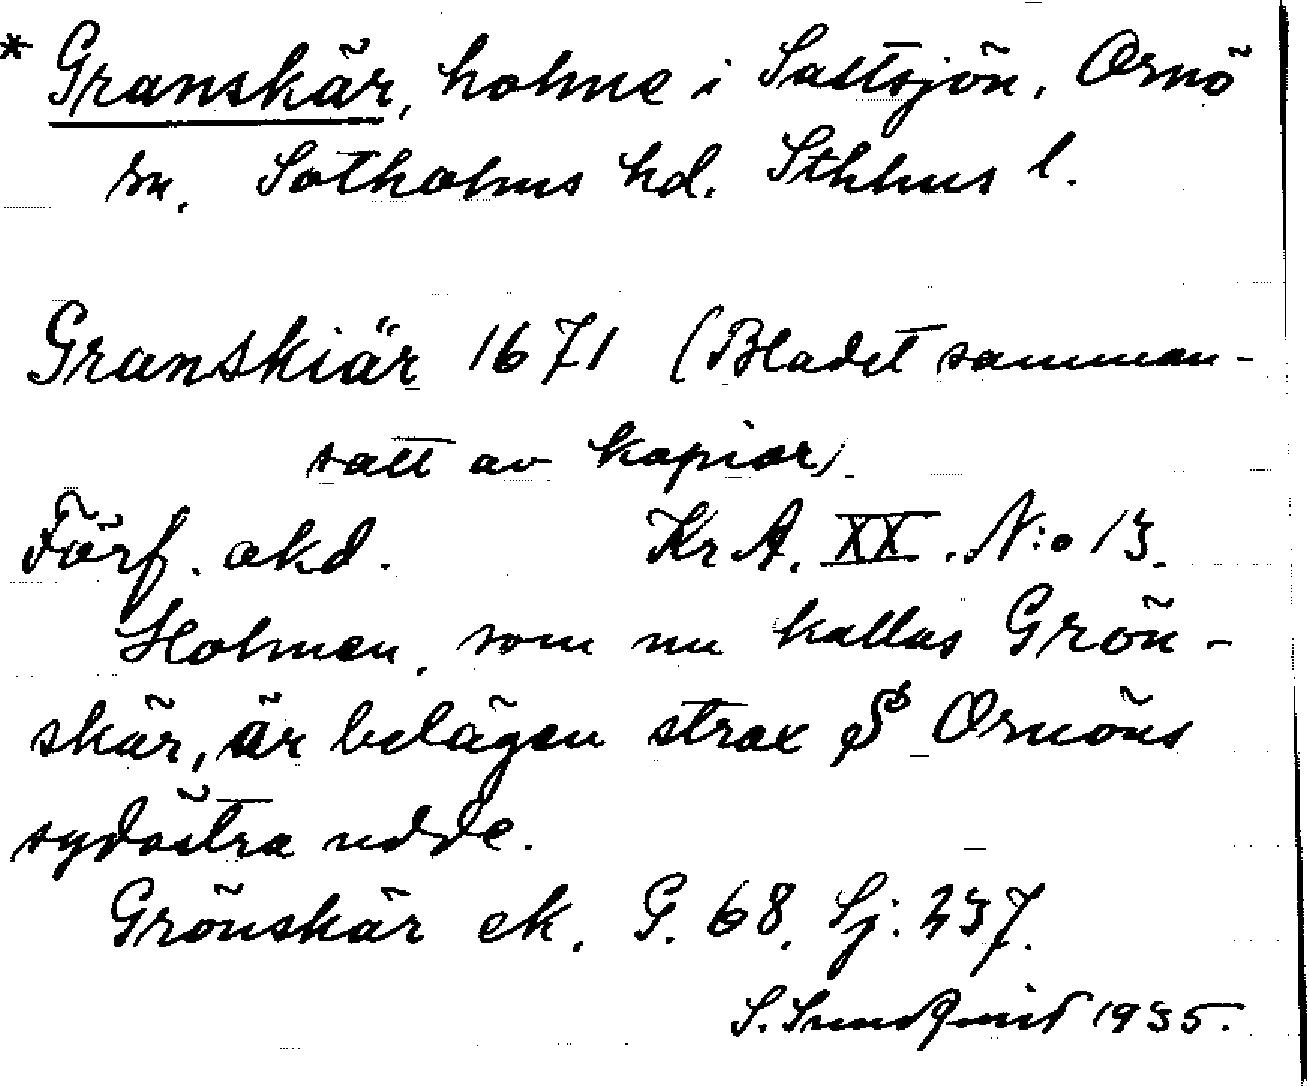 * Granskär, holme i Saltsjön, Ornö
sn. Sotholms hd. Sthlms l.
Granskiär 1671 (Bladet samman-
satt av kopior).
Förf. okd. Kr A. XX. N:o 13.
Holmen, som nu kallas Grön-
skär, är belägen strax S Ornöns
sydöstra udde.
Grönskär ek. G. 68, Sj: 237.
S. Sundquist 1935.